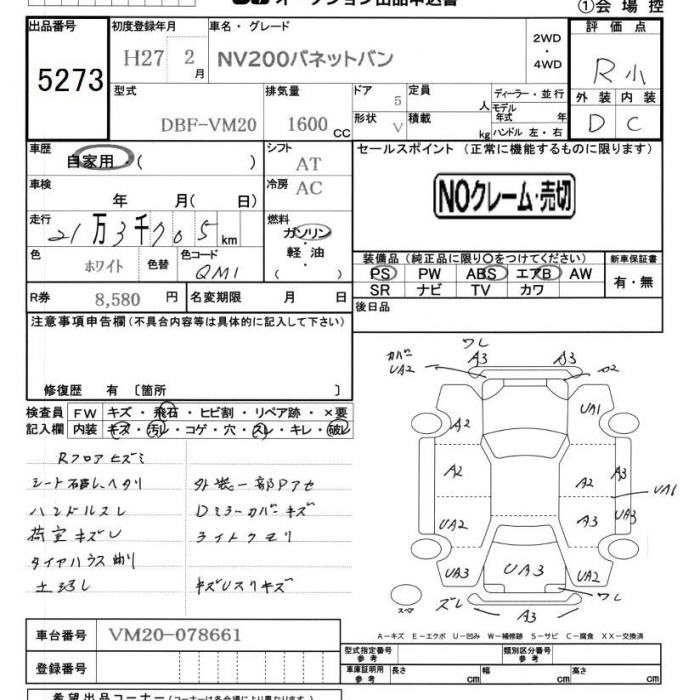 オークション出品申込書
①会場控
出品番号
5273
初度登録年月
H27 2月
車名・グレード
NV200バネットバン
2WD
・
4WD
評価点
R小
外装 内装
D C
型式
DBF-VM20
排気量
1600 CC
ドア
5
形状
V
定員
人
積載
kg
ディーラー・並行
モデル年式 年
ハンドル 左・右
車歴
自家用・( )
シフト
AT
車検
年 月( 日)
冷房
AC
走行
21万3千705km
燃料
ガソリン
軽・油
( )
色
ホワイト
色替
色コード
QM1
R券
8,580 円
名変期限 月 日
セールスポイント (正常に機能するものに限ります)
NOクレーム・売切
装備品(純正品に限り○をつけてください)
PS PW ABS エアB AW
SR ナビ TV カワ
新車保証書
有・無
後日品
注意事項申告欄(不具合内容等は具体的に記入して下さい)
修復歴 有 〔箇所 〕
検査員記入欄
FW キズ・飛石・ヒビ割・リペア跡・×要
内装 キズ・汚レ・コゲ・穴・スレ・キレ・破レ
Rフロアヒズミ
シート破レ、ヘタリ
ハンドルスレ
荷室キズU
タイヤハウス曲リ
外装一部Pアセ
Dミラーカバーキズ
ライトクモリ
キズUスリキズ
ワレ
A3
A3
カバー
UA2
UA1
A2
A2
A2
A3
UA1
UA2
A3
UA3
UA3
UA3
UA2
ワレ
ズレ
A3
スペア
A－キズ E－エクボ U－凹み W－補修跡 S－サビ C－腐食 XX－交換済
車台番号
VM20-078661
登録番号
型式指定番号
参考
類別区分番号
参考
車庫証明用
参考
長さ cm
幅 cm
高さ cm
希望出品コーナー(コーナーは各会場により異なります)